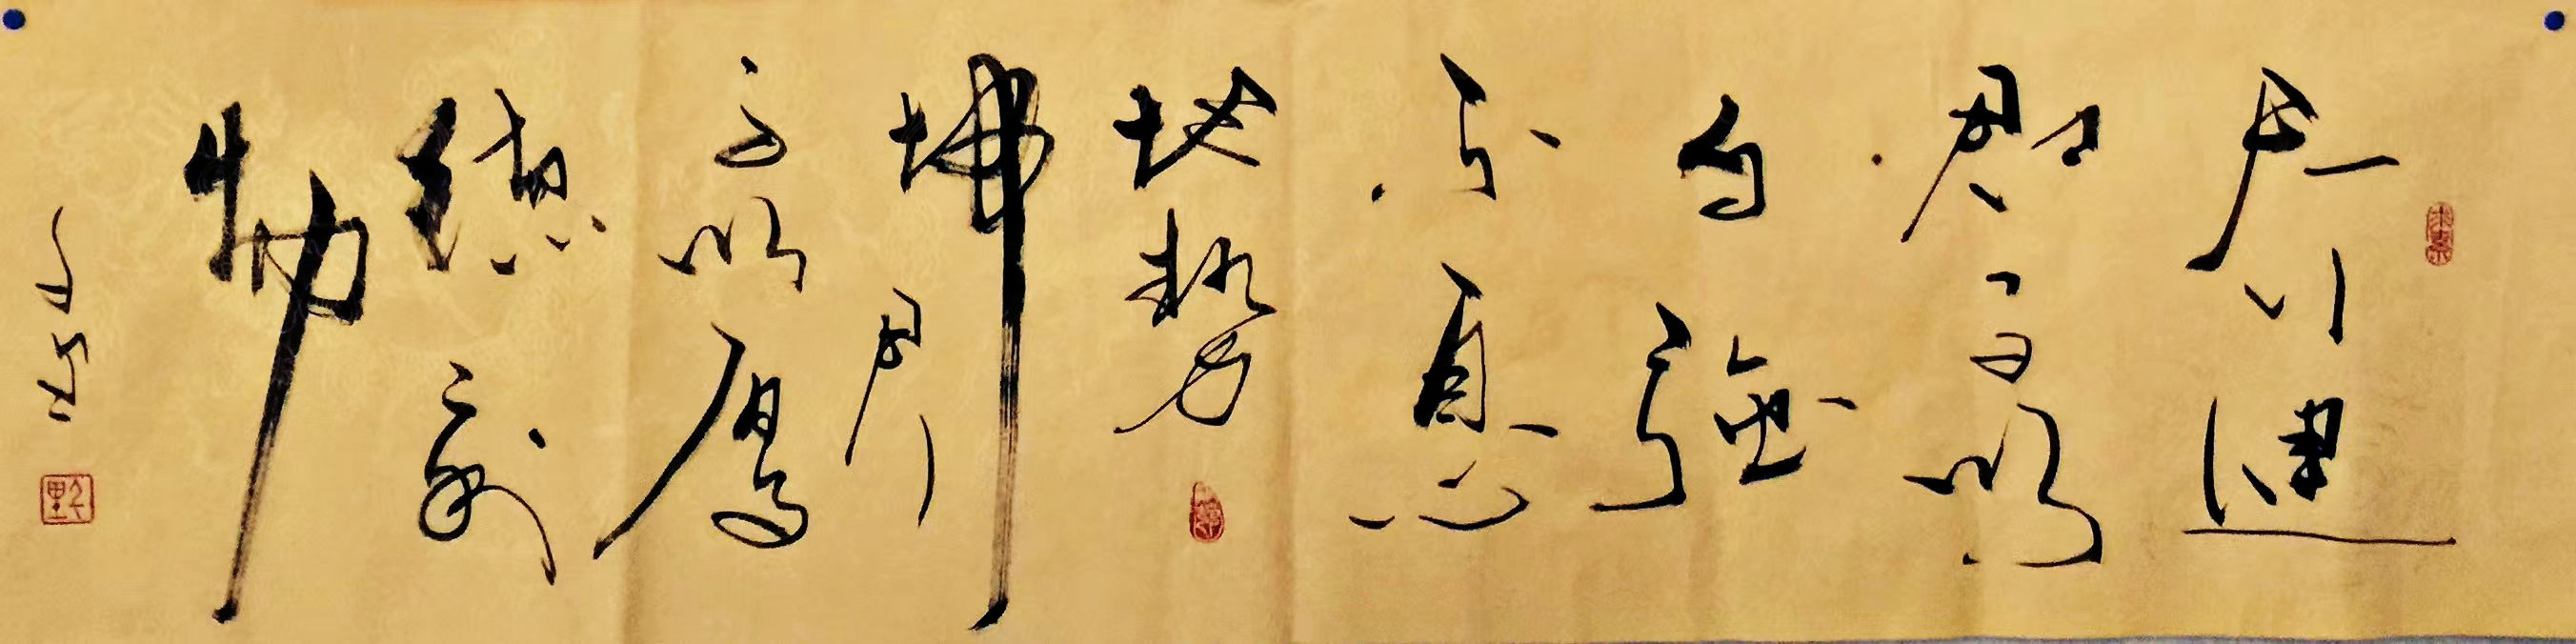 天行健
君子以
自強
不息
地勢
坤君
子以厚
德載
物